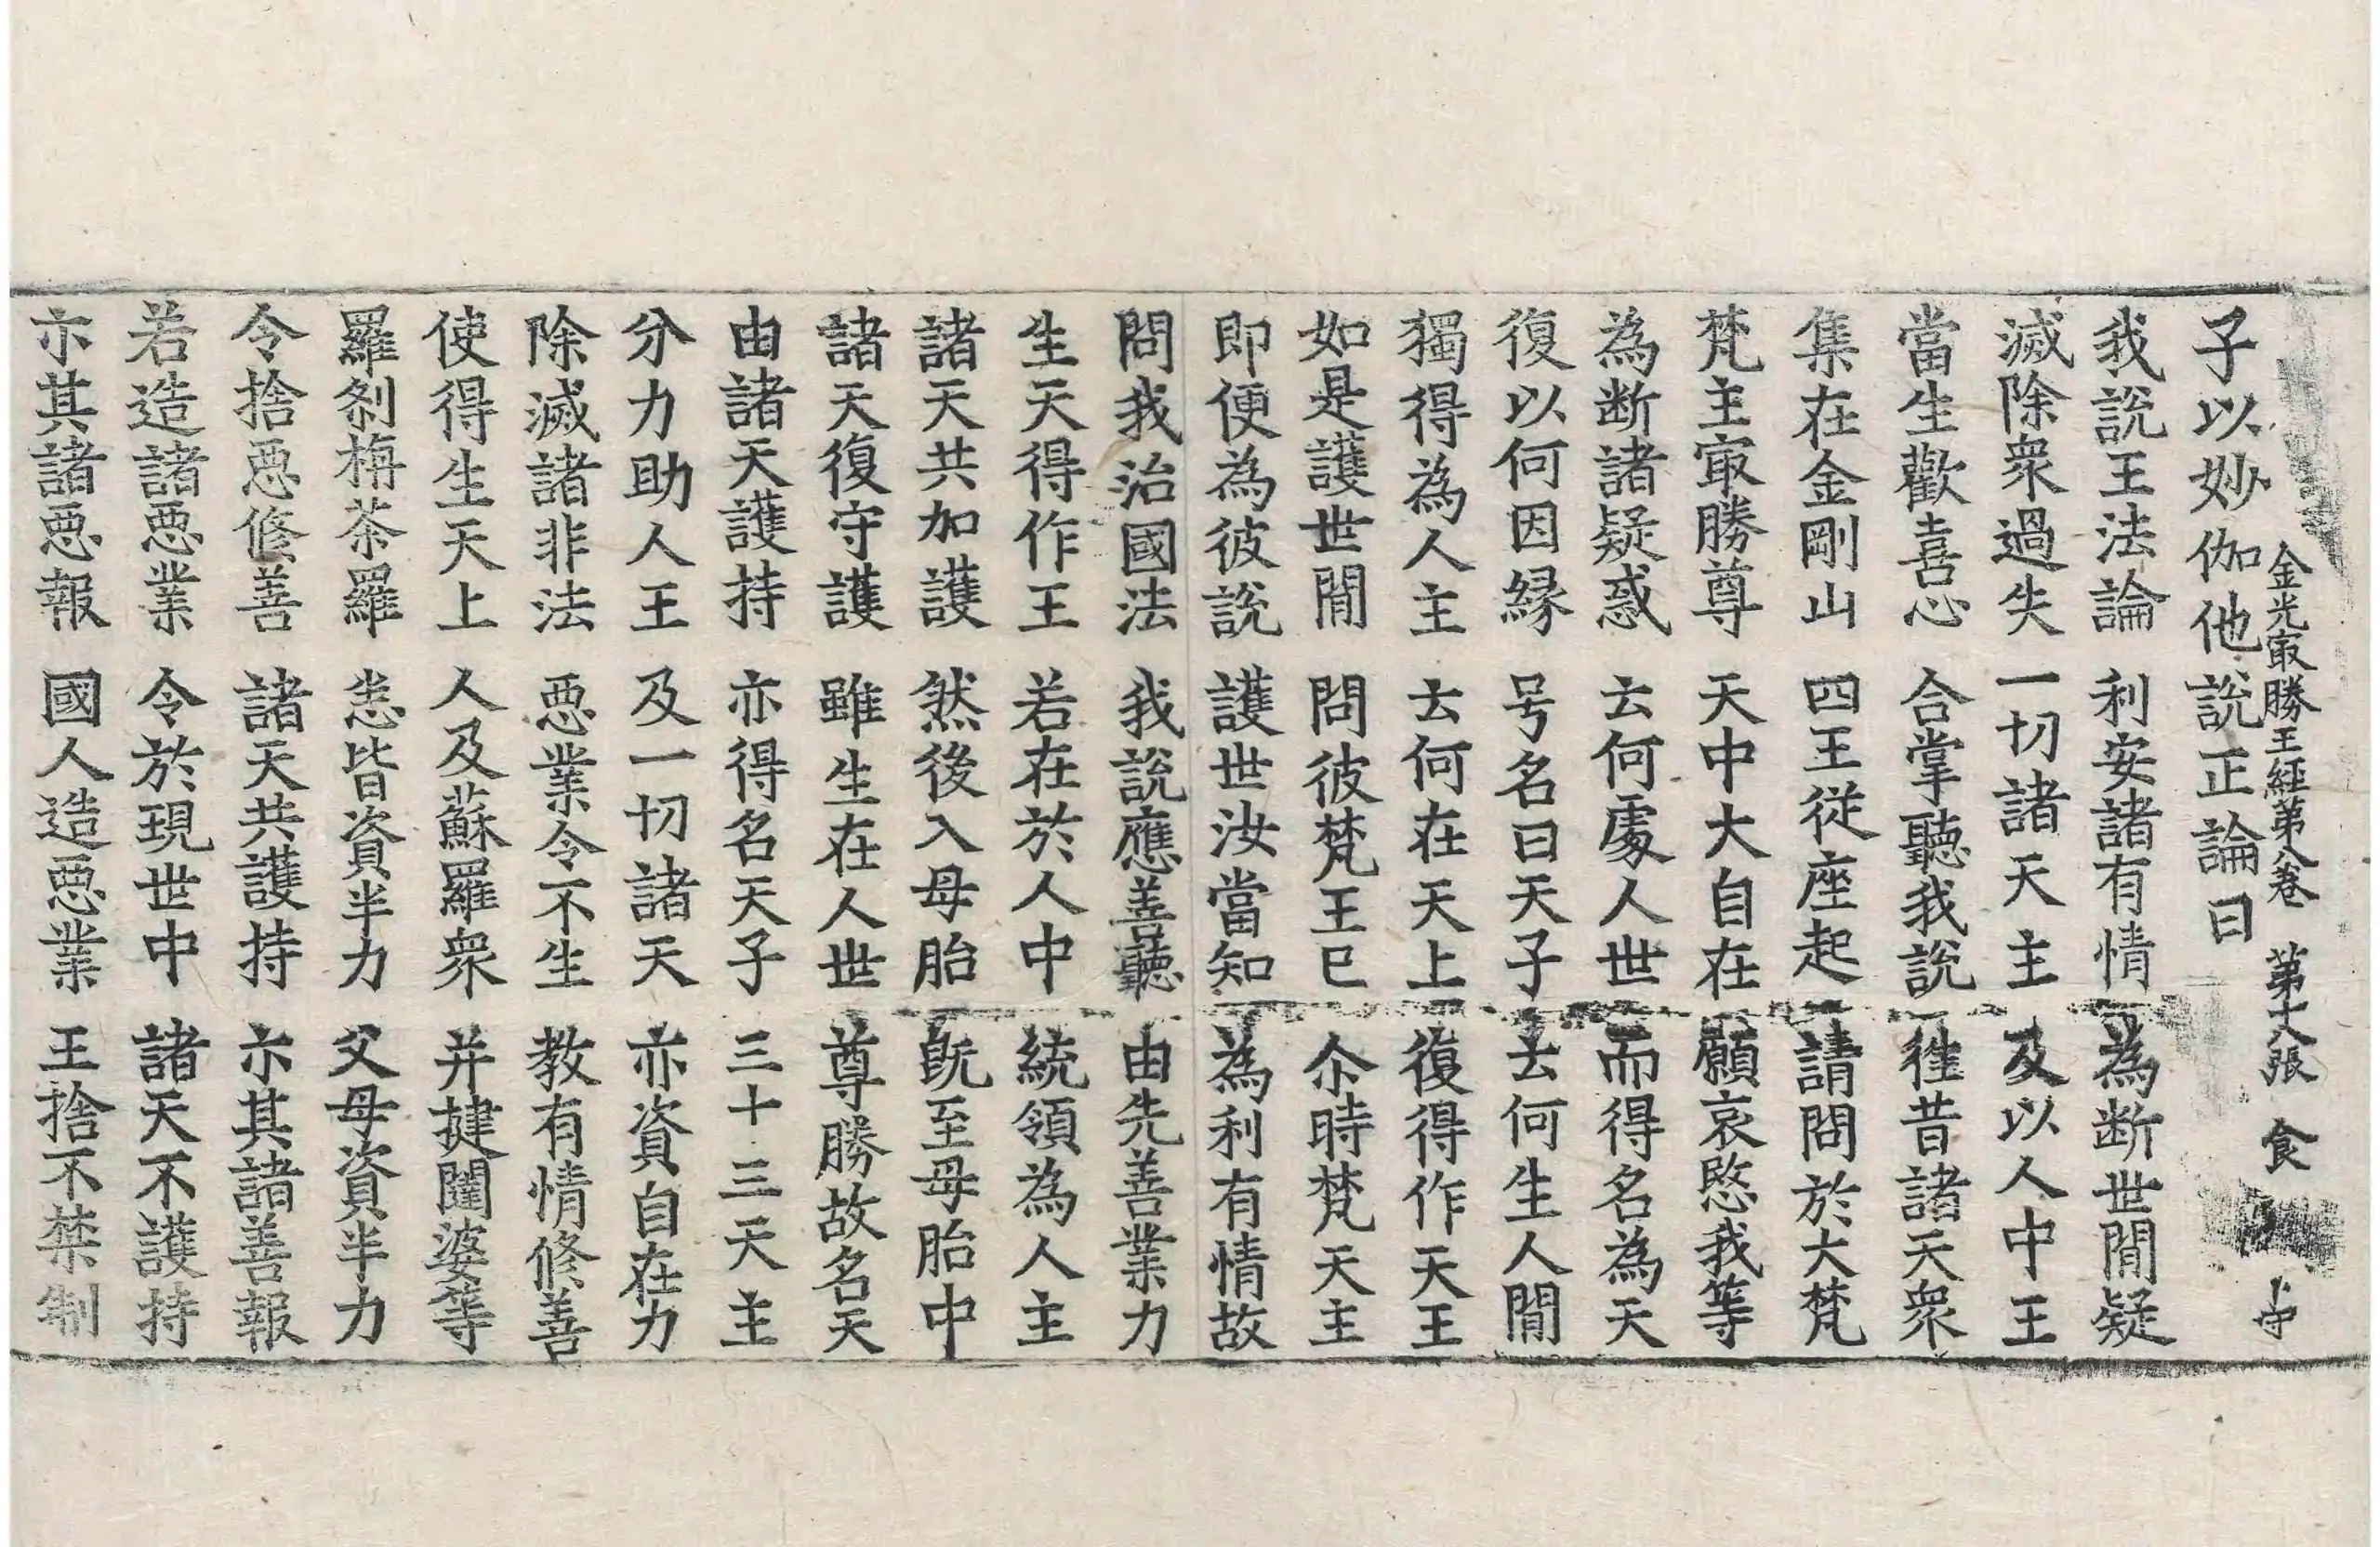 金光㝡勝王經第八卷 第十八張 食
子以妙伽他說正論曰
我說王法論 利安諸有情 為断世閒疑
滅除衆過失 一切諸天主 及以人中王
當生歡喜心 合掌聽我說 徃昔諸天衆
集在金剛山 四王從座起 請問於大梵
梵主㝡勝尊 天中大自在 願哀愍我等
為断諸疑惑 云何處人世 而得名為天
復以何因縁 号名曰天子 云何生人閒
獨得為人主 云何在天上 復得作天王
如是護世閒 問彼梵王已 尒時梵天主
即便為彼說 護世汝當知 為利有情故
問我治國法 我說應善聽 由先善業力
生天得作王 若在於人中 統領為人主
諸天共加護 然後入母胎 既至母胎中
諸天復守護 雖生在人世 尊勝故名天
由諸天護持 亦得名天子 三十三天主
分力助人王 及一切諸天 亦資自在力
除滅諸非法 惡業令不生 教有情修善
使得生天上 人及蘇羅衆 并揵闥婆等
羅剎栴茶羅 悉皆資半力 父母資半力
令捨惡修善 諸天共護持 示其諸善報
若造諸惡業 令於現世中 諸天不護持
示其諸惡報 國人造惡業 王捨不禁制